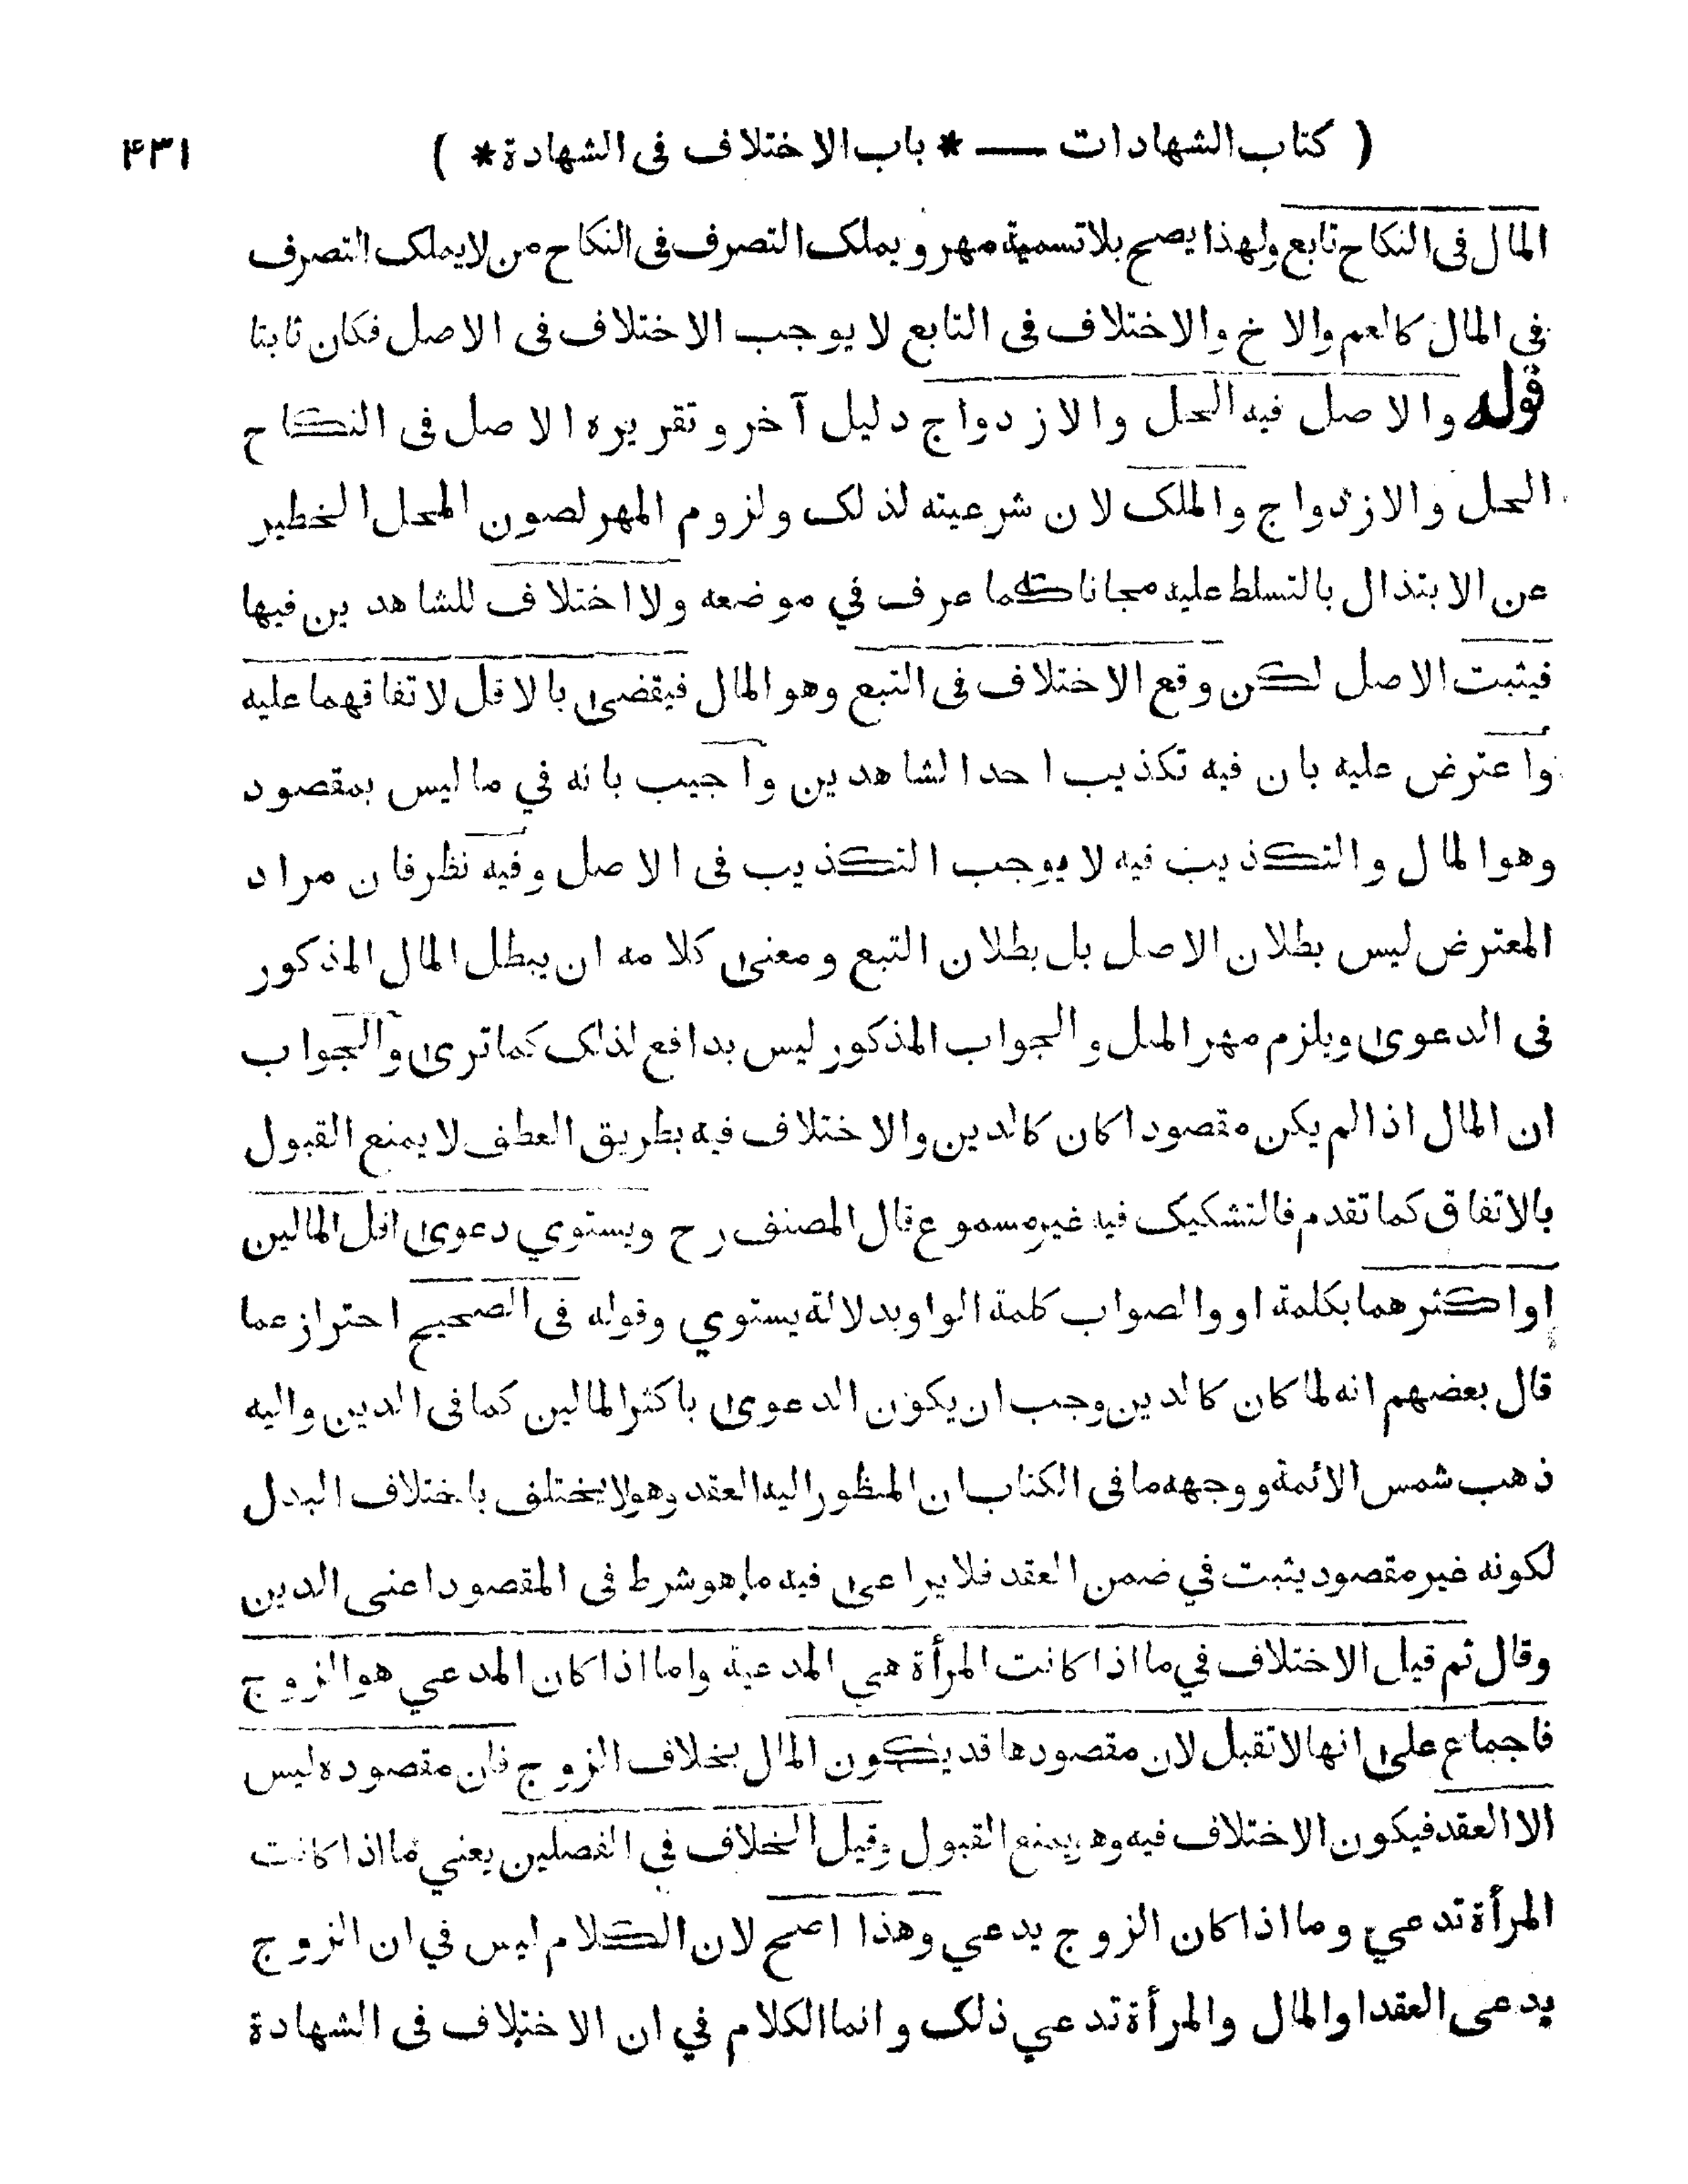 ( كتاب الشهادات — * باب الاختلاف فى الشهادة * ) ۴۳۱
المال فى النكاح تابع ولهذا يصح بلا تسمية مهر ويملك التصرف فى النكاح من لا يملك التصرف
في المال كالعم والاخ والاختلاف فى التابع لا يوجب الاختلاف فى الاصل فكان ثابتا
قوله والاصل فيه الحل والازدواج دليل آخر وتقريره الاصل فى النكاح
الحل والازدواج والملك لان شرعيته لذلك ولزوم المهر لصون المحل الخطير
عن الابتذال بالتسلط عليه مجانا كما عرف في موضعه ولا اختلاف للشاهدين فيها
فيثبت الاصل لكن وقع الاختلاف فى التبع وهو المال فيقضى بالاقل لاتفاقهما عليه
واعترض عليه بان فيه تكذيب احد الشاهدين وأجيب بانه في ما ليس بمقصود
وهو المال والتكذيب فيه لا يوجب التكذيب فى الاصل وفيه نظر فان مراد
المعترض ليس بطلان الاصل بل بطلان التبع ومعنى كلامه ان يبطل المال المذكور
فى الدعوى ويلزم مهر المثل والجواب المذكور ليس بدافع لذلك كما ترى والجواب
ان المال اذا لم يكن مقصودا كان كالدين والاختلاف فيه بطريق العطف لا يمنع القبول
بالاتفاق كما تقدم فالتشكيك فيه غير مسموع قال المصنف رح ويستوي دعوى اقل المالين
او اكثرهما بكلمة او والصواب كلمة الواو بدلالة يستوي وقوله فى الصحيح احتراز عما
قال بعضهم انه لما كان كالدين وجب ان يكون الدعوى باكثر المالين كما فى الدين واليه
ذهب شمس الائمة ووجهه ما فى الكتاب ان المنظور اليه العقد وهو لا يختلف باختلاف البدل
لكونه غير مقصود يثبت في ضمن العقد فلا يراعى فيه ما هو شرط فى المقصود اعنى الدين
وقال ثم قيل الاختلاف في ما اذا كانت المرأة هي المدعية واما اذا كان المدعي هو الزوج
فاجماع على انها لا تقبل لان مقصودها قد يكون المال بخلاف الزوج فان مقصوده ليس
الا العقد فيكون الاختلاف فيه وهو يمنع القبول وقيل الخلاف في الفصلين يعني ما اذا كانت
المرأة تدعي وما اذا كان الزوج يدعي وهذا اصح لان الكلام ليس في ان الزوج
يدعى العقد او المال والمرأة تدعي ذلك وانما الكلام في ان الاختلاف فى الشهادة